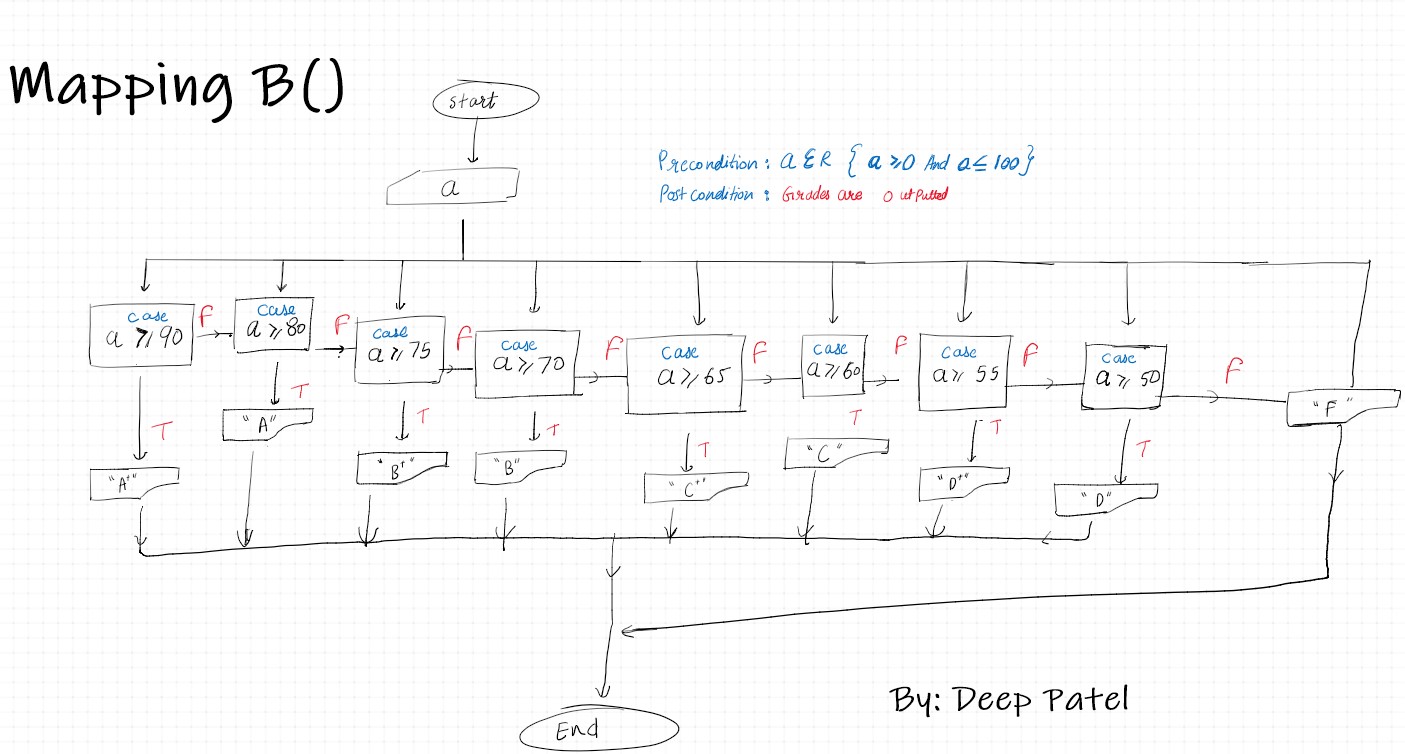 Mapping B()
start
a
Precondition : a ∈ R { a ≥ 0 And a ≤ 100 }
Post condition : Grades are outputted
case
a ≥ 90
F
case
a ≥ 80
F
case
a ≥ 75
F
case
a ≥ 70
F
case
a ≥ 65
F
case
a ≥ 60
F
case
a ≥ 55
F
case
a ≥ 50
F
"F"
T
T
T
T
T
T
T
T
"A+"
"A"
"B+"
"B"
"C+"
"C"
"D+"
"D"
End
By: Deep Patel